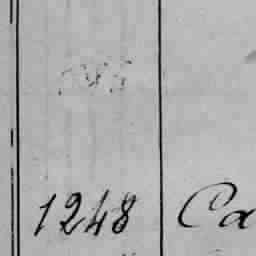 1248 Ca